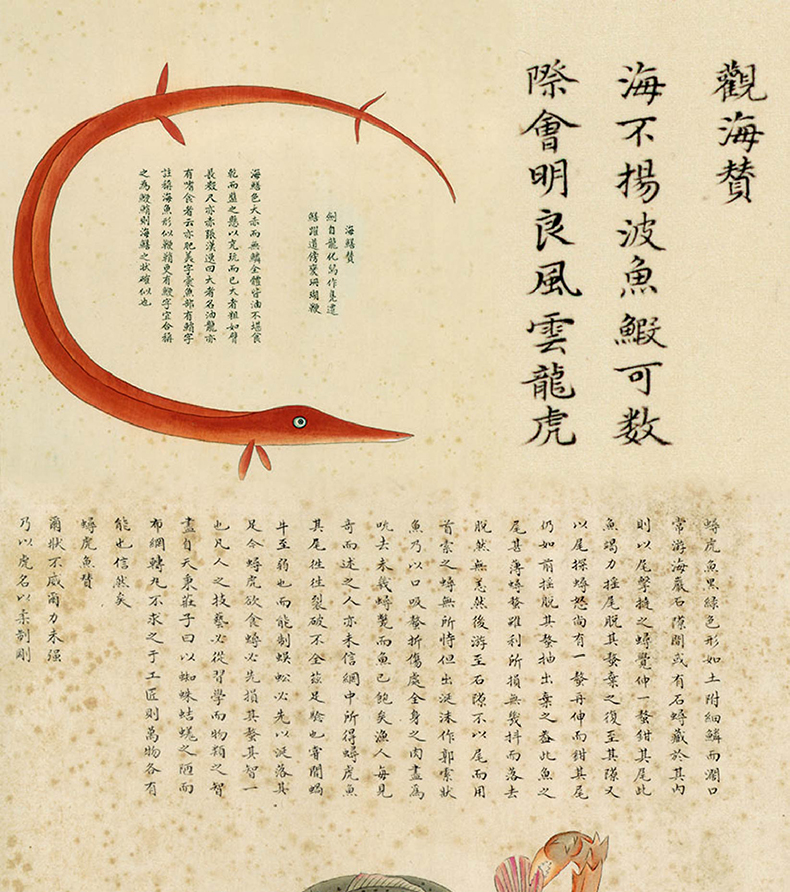 觀海赞
海不揚波魚鰕可数
際會明良風雲龍虎
海鱔赞
劍自龍化寫作良遣
鱔躍道傍褒珊瑚鞭
海鱔色大赤而無鱗全體皆油不堪食
乾而盤之懸以充玩而已大者粗如臂
長数尺亦赤張漢逸曰大者名油龍亦
有啗食者云亦肥美字彙魚部有鮹字
註稱海魚形似鞭鞘更有鯾字宜合稱
之為鯾鮹則海鱔之狀確似也
蟳虎魚黒綠色形如土附細鱗而濶口
常游海巖石隙間或有石蟳藏於其内
則以尾擊撻之蟳覺伸一螯鉗其尾此
魚竭力摇尾脱其螯棄之復至其隙又
以尾探蟳怒尚有一螯再伸而鉗其尾
仍如前摇脱其螯抽出棄之盖此魚之
尾甚薄蟳螯雖利所損無幾抖而落去
脱然無恙然後游至石隙不以尾而用
首索之蟳無所恃但出涎沫作郭索狀
魚乃以口吸螯折傷處全身之肉盡為
吮去未幾蟳斃而魚已飽矣漁人每見
奇而述之人亦未信網中所得蟳虎魚
其尾徃徃裂破不全兹足驗也嘗聞蝎
牛至弱也而能制蜈蚣必先以涎落其
足今蟳虎欲食蟳必先損其螯其智一
也凡人之技藝必從習學而物類之智
盡自天秉莊子曰以蜘蛛蛣蜣之陋而
布網轉丸不求之于工匠則萬物各有
能也信然矣
蟳虎魚赞
爾狀不威爾力未强
乃以虎名以柔制剛